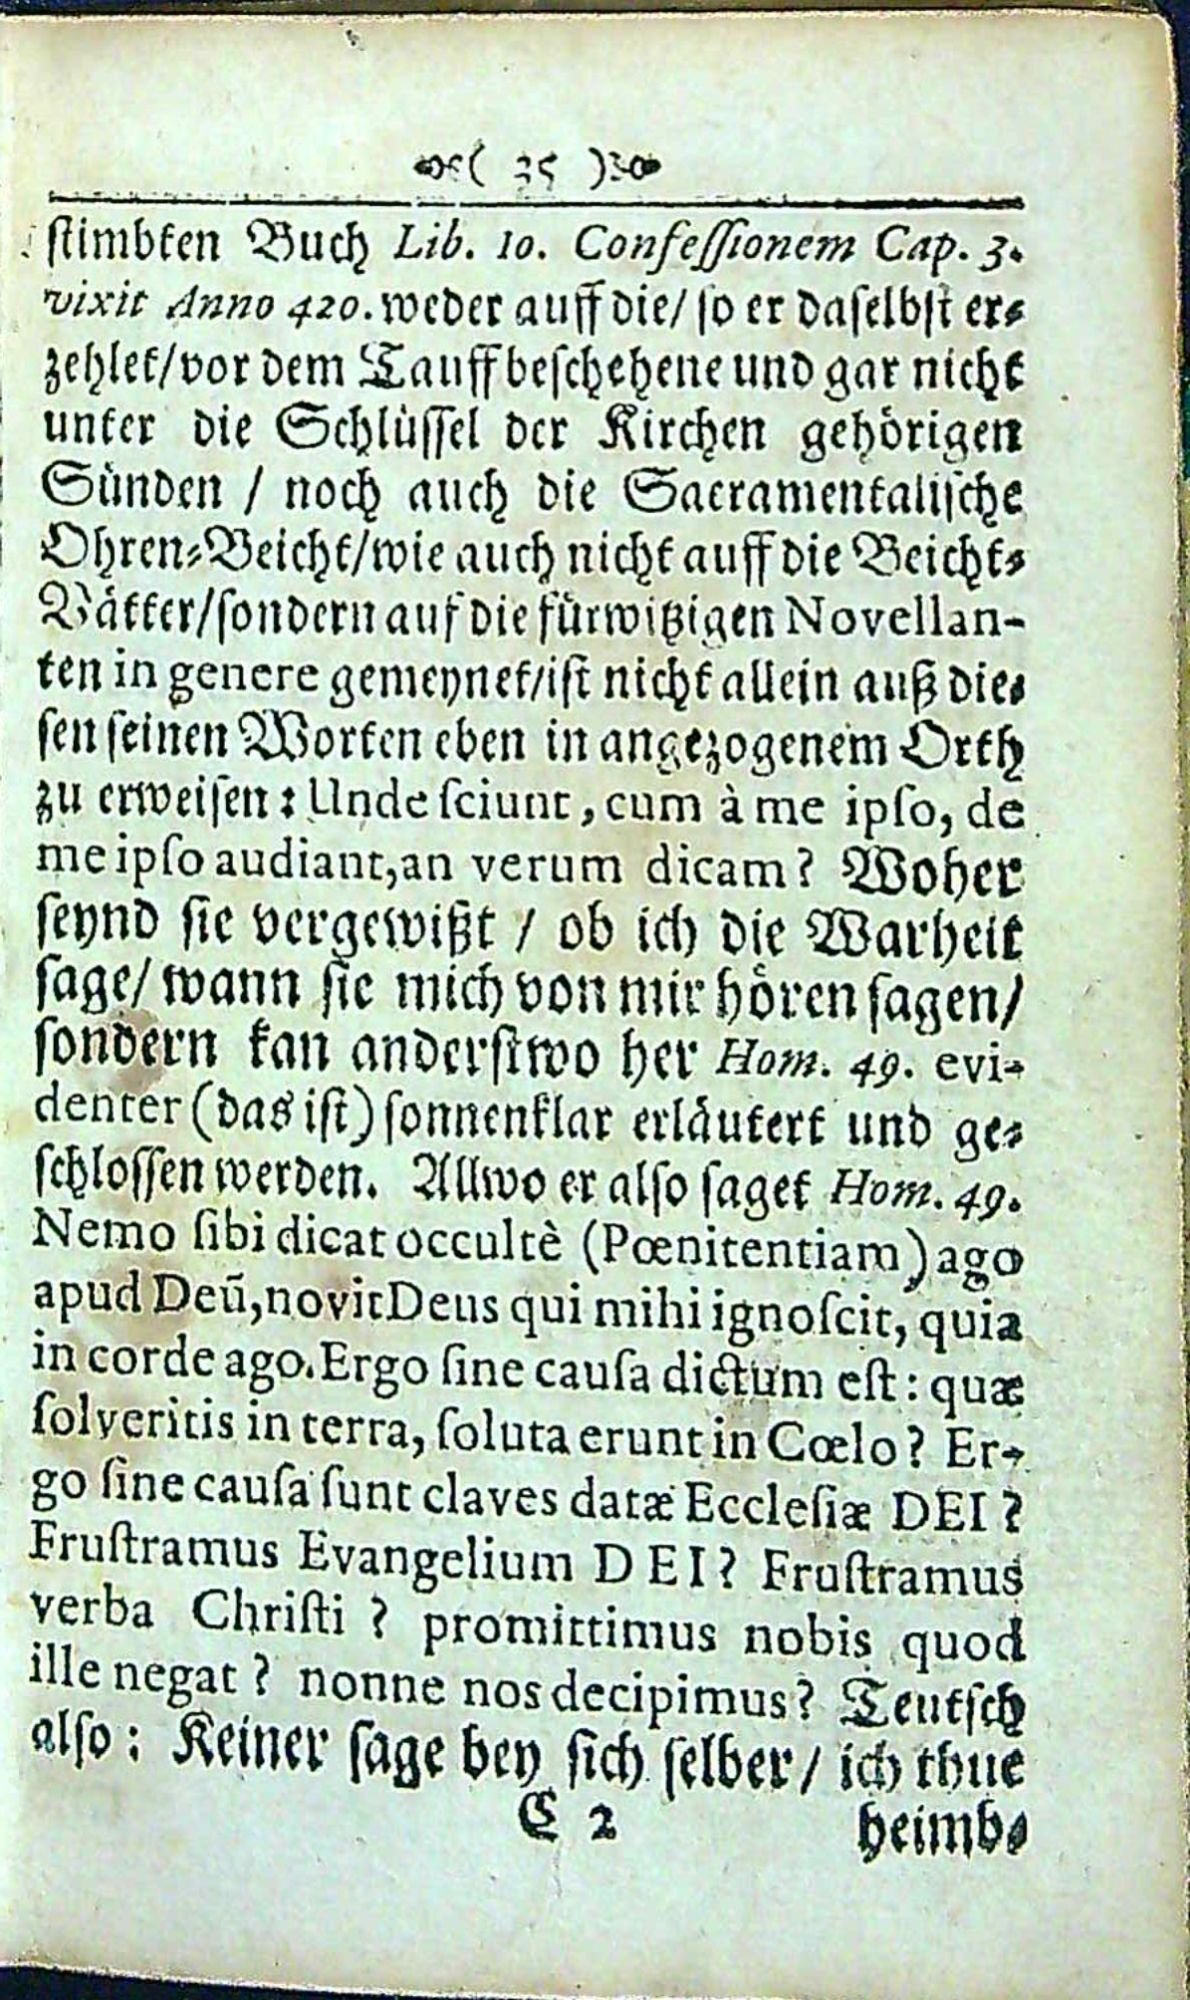 ( 35 )
stimbten Buch Lib. 10. Confessionem Cap. 3.
vixit Anno 420. weder auff die/ so er daselbst er-
zehlet/vor dem Tauff beschehene und gar nicht
unter die Schlüssel der Kirchen gehörigen
Sünden / noch auch die Sacramentalische
Ohren-Beicht/wie auch nicht auff die Beicht-
Vätter/sondern auf die fürwitzigen Novellan-
ten in genere gemeynet/ist nicht allein auß die-
sen seinen Worten eben in angezogenem Orth
zu erweisen: Unde sciunt, cum à me ipso, de
me ipso audiant, an verum dicam? Woher
seynd sie vergewißt / ob ich die Warheit
sage/ wann sie mich von mir hören sagen/
sondern kan anderstwo her Hom. 49. evi-
denter (das ist) sonnenklar erläutert und ge-
schlossen werden. Allwo er also saget Hom. 49.
Nemo sibi dicat occultè (Pœnitentiam) ago
apud Deũ, novit Deus qui mihi ignoscit, quia
in corde ago. Ergo sine causa dictum est: quæ
solveritis in terra, soluta erunt in Cœlo? Er-
go sine causa sunt claves datæ Ecclesiæ DEI?
Frustramus Evangelium DEI? Frustramus
verba Christi? promittimus nobis quod
ille negat? nonne nos decipimus? Teutsch
also: Keiner sage bey sich selber/ ich thue
C 2 heimb-